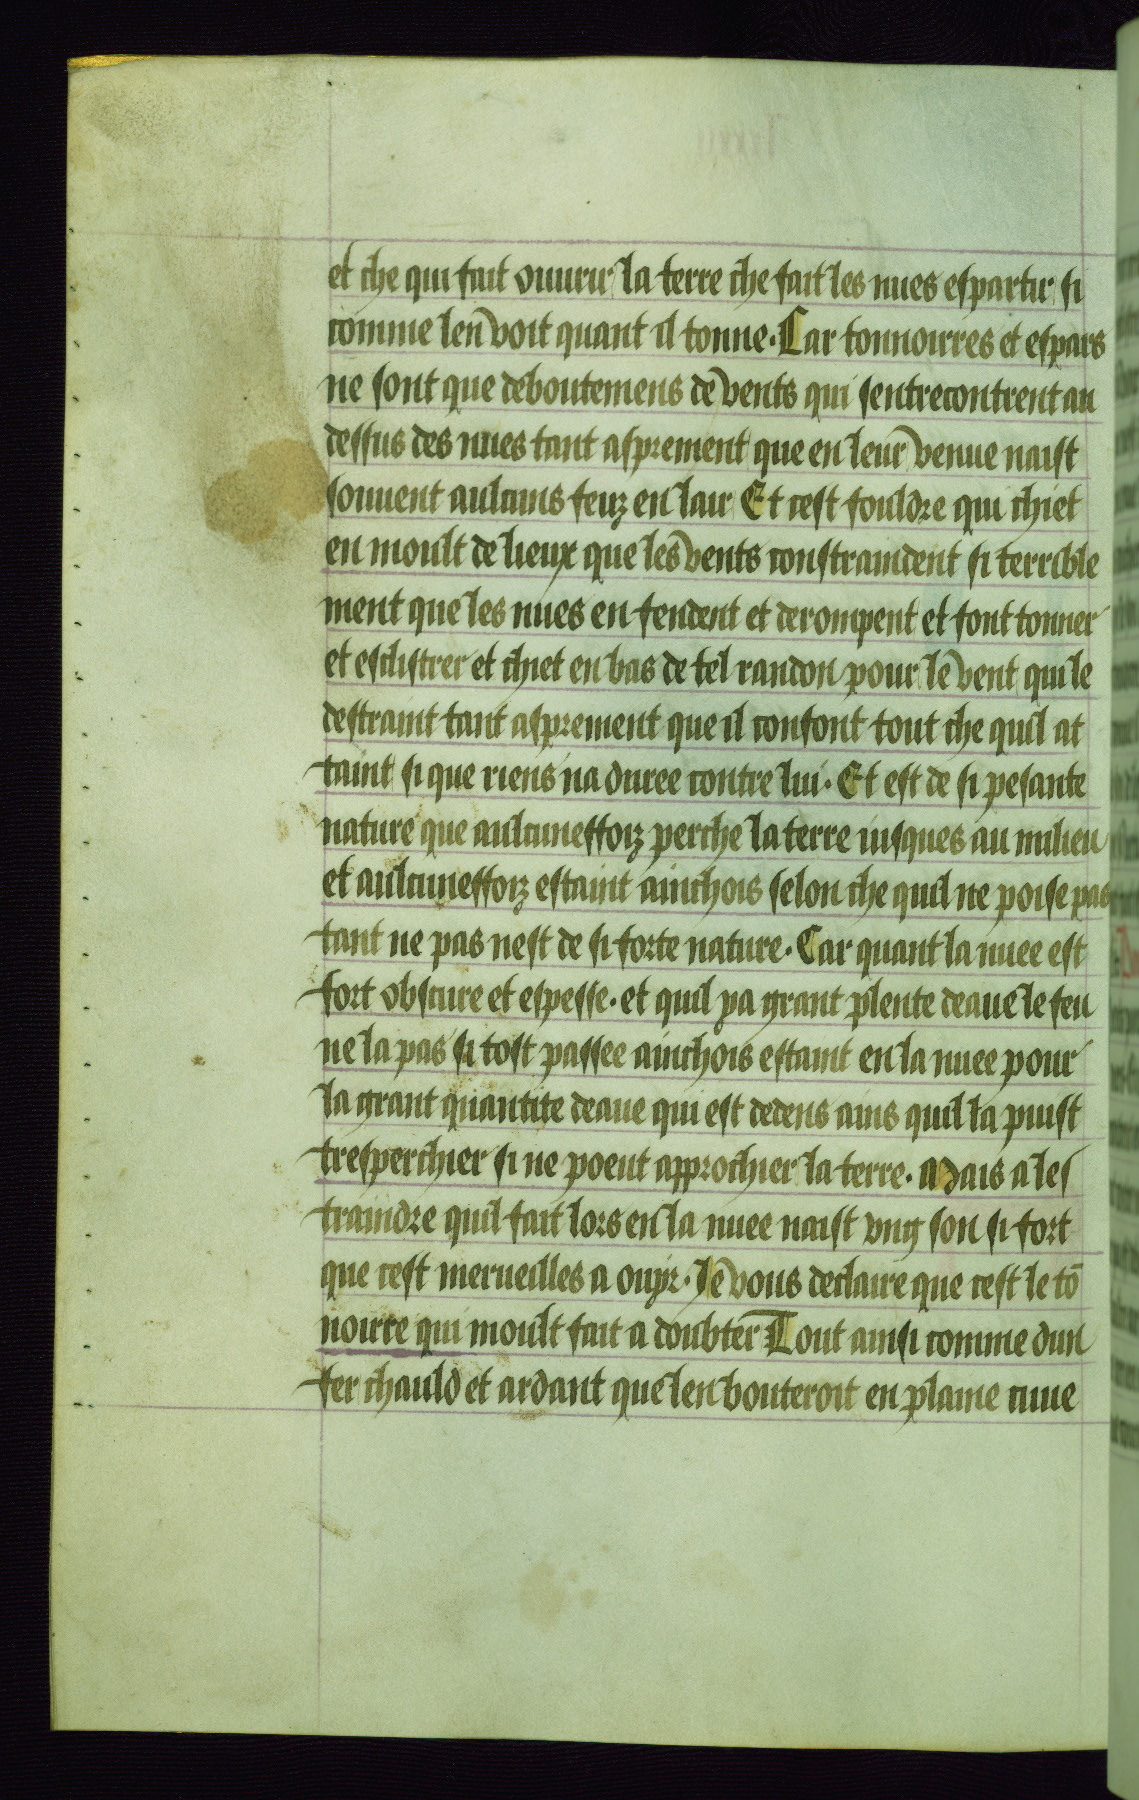 et che qui fait ouurir la terre che fait les nues espartir si
comme len voit quant il tonne. Car tonnoirres et espars
ne sont que deboutemens de vents qui sentrecontrent au
dessus des nues tant asprement que en leur venue naist
souuent aulcuns feuz en lair Et cest fouldre qui chiet
en moult de lieux que les vents constraindent si terrible
ment que les nues en fendent et derompent et font tonner
et esclistrer et chiet en bas de tel randon pour le vent qui le
destraint tant asprement que il confont tout che quil at
taint si que riens na duree contre lui. Et est de si pesante
nature que aulcuneffoiz perche la terre iusques au milieu
et aulcuneffoiz estaint ainchois selon che quil ne poise pas
tant ne pas nest de si forte nature. Car quant la nuee est
fort obscure et espesse. et quil ya grant plente deaue le feu
ne la pas si tost passee ainchois estaint en la nuee pour
la grant quantite deaue qui est dedens ains quil la puist
tresperchier si ne poeut approchier la terre. Mais a les
traindre quil fait lors en la nuee naist vng son si fort
que cest merueilles a ouyr. Je vous declaire que cest le tō
noirre qui moult fait a doubter Tout ainsi comme dun
fer chauld et ardant que len bouteroit en plaine cuue